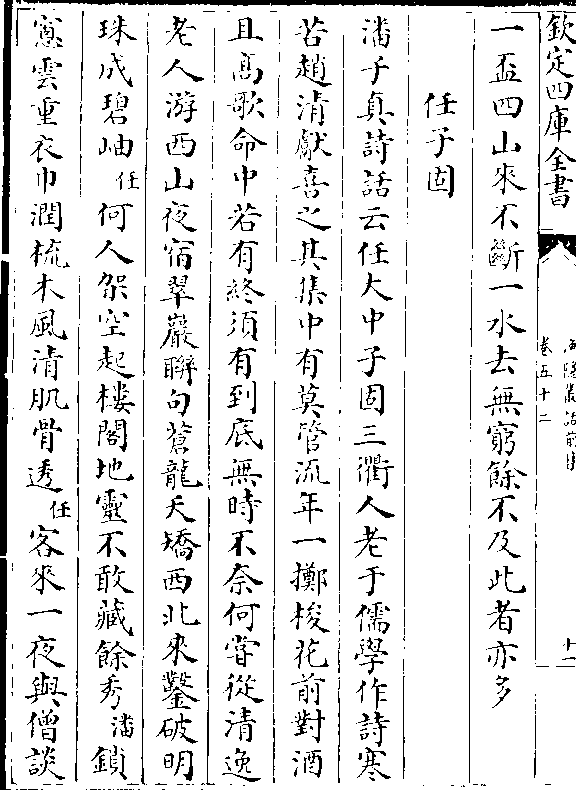 欽定四庫全書
卷五十二
一盃四山來不斷一水去無窮餘不及此者亦多
任子固
潘子真詩話云任大中子固三衢人老于儒學作詩寒
苦趙清獻喜之其集中有莫管流年一擲梭花前對酒
且髙歌命中若有終須有到底無時不奈何嘗從清逸
老人游西山夜宿翠巖聯句蒼龍夭矯西北來鑿破明
珠成碧岫任何人架空起樓閣地靈不敢藏餘秀潘鎖
窻雲重衣巾潤梳木風清肌骨透任客來一夜與僧談